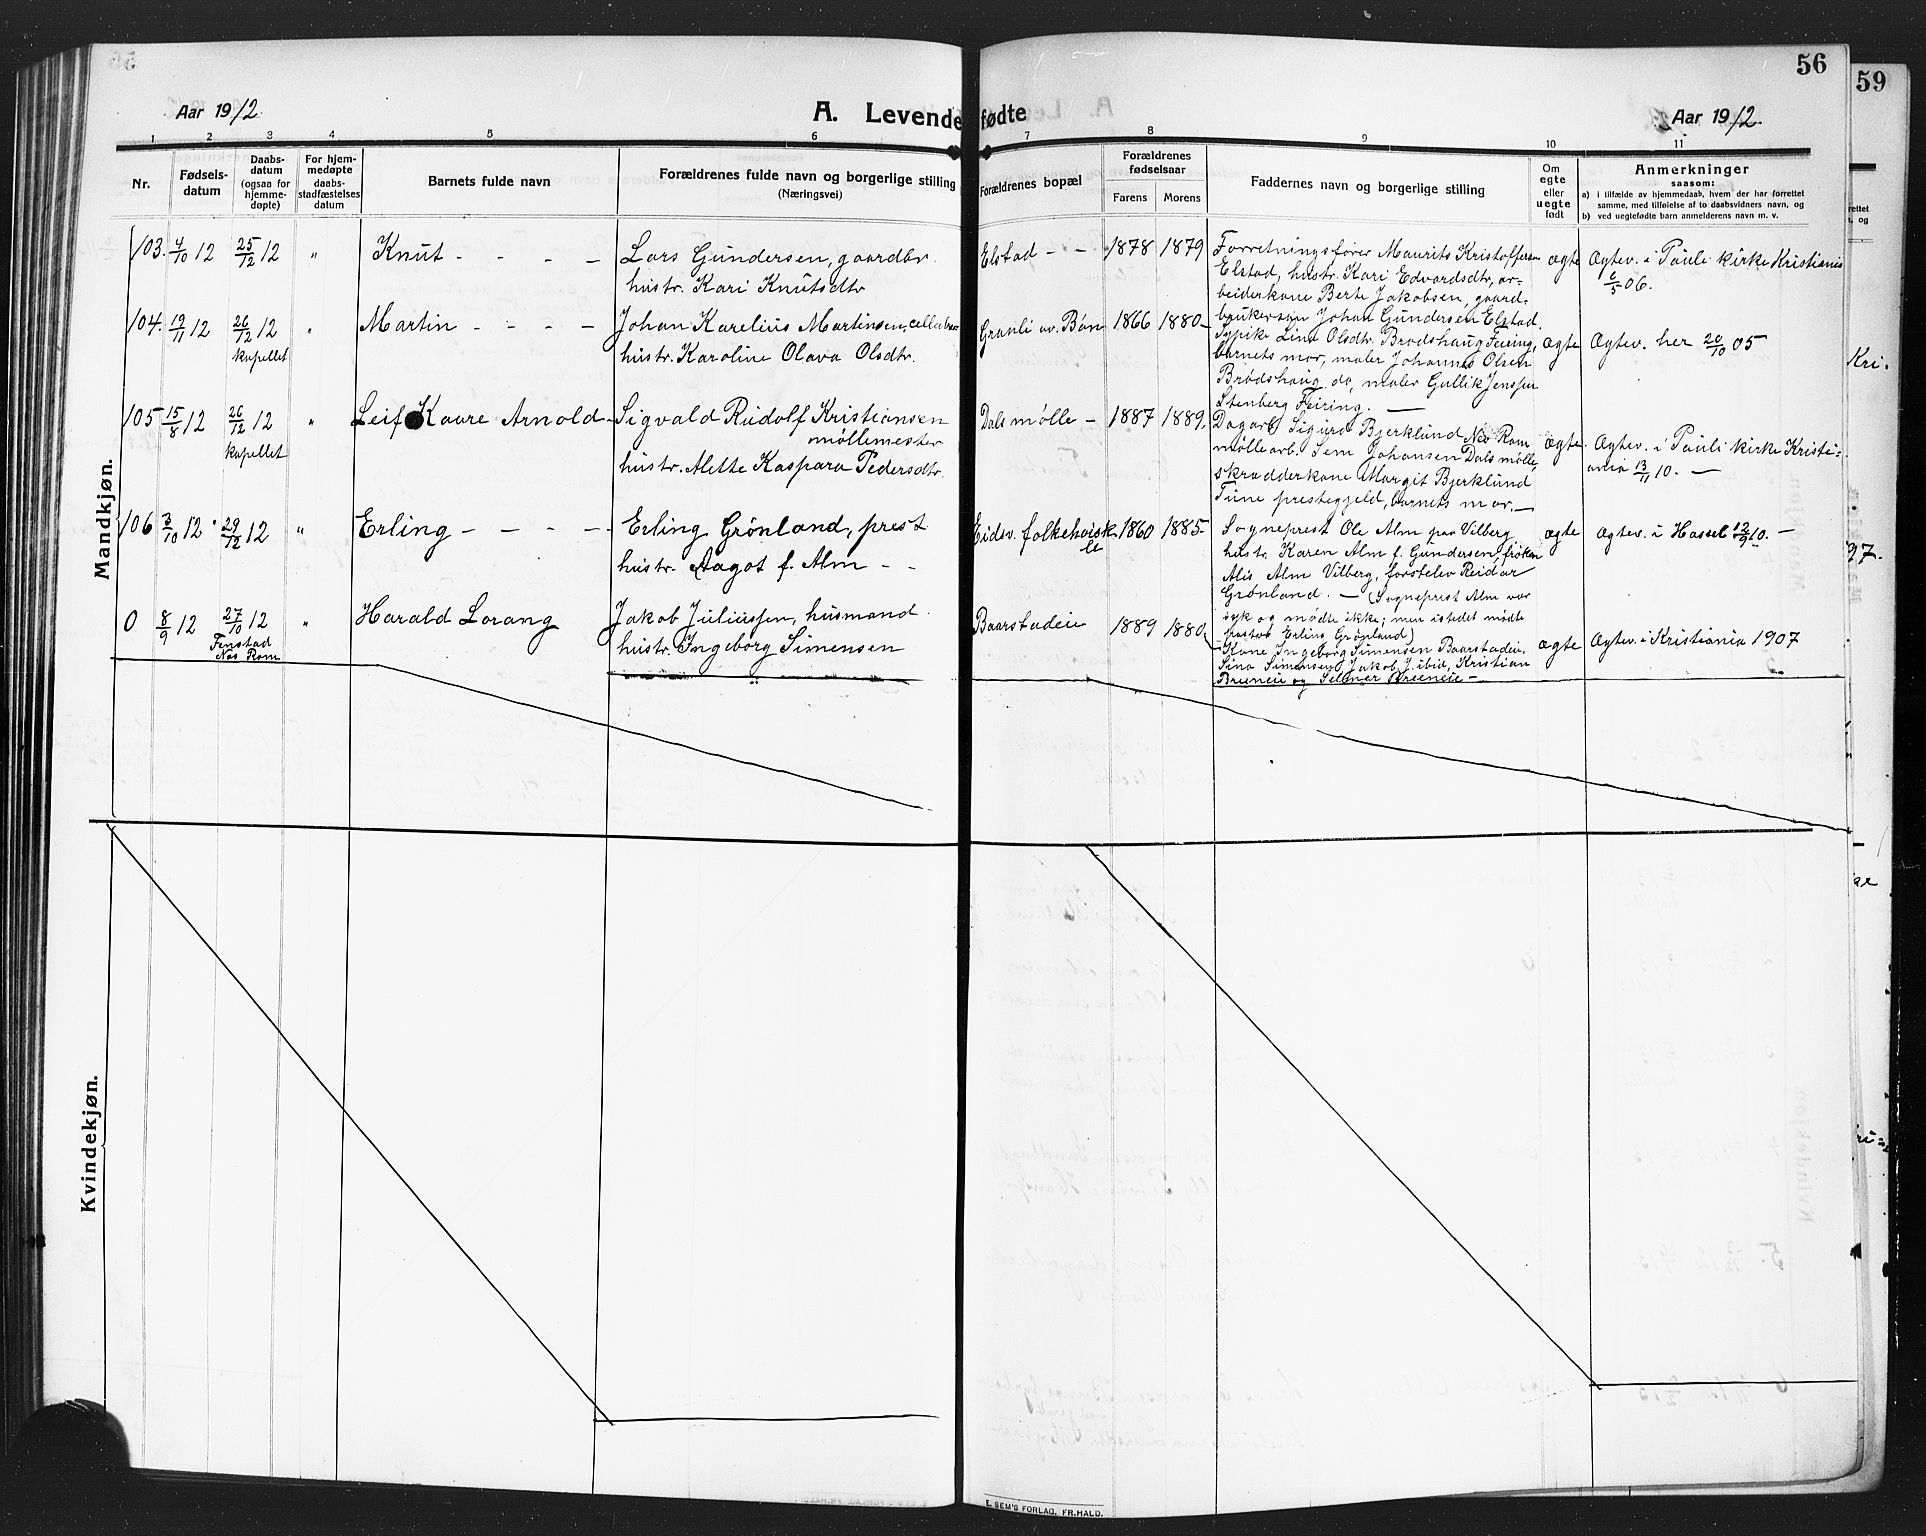 56
59
Aar 1912
A. Levendefødte
Aar 1912
1 2 3 4 5 6 7 8 9 10 11
Nr.
Fødsels-
datum
Daabs-
datum
(ogsaa for
hjemme-
døpte)
For hjem-
medøpte
daabs-
stadfæstelses
datum
Barnets fulde navn
Forældrenes fulde navn og borgerlige stilling
(Næringsvei)
Forældrenes bopæl
Forældrenes
fødselsaar
Farens Morens
Faddernes navn og borgerlige stilling
Om
egte
eller
uegte
født
Anmerkninger
saasom:
a) i tilfælde av hjemmedaab, hvem der har forrettet
samme, med tilføielse af to daabsvidners navn, og
b) ved uegtefødte barn anmelderens navn m. v.
Mandkjøn.
103. 4/10 12 25/12 12 " Knut - - - -
Lars Gundersen, gaardbr.
hustr. Kari Knutsdtr
Elstad - - 1878 1879
Forretningsfører Maurits Kristoffersen
Elstad, hustr. Kari Edvardsdtr, ar-
beiderkone Berte Jakobsen, gaard-
brukersøn Johan Gundersen Elstad.
ægte Ægtev. i Pauli kirke Kristiania
6/5 06.
104. 19/11 12 26/12 12 " Martin - - - -
kapellet
Johan Karelius Martinsen,
hustr. Karoline Olava Olsdtr.
Granli av. Bøn 1866 1880
Pypike Lina Olsdtr. Brødshaug Feiring,
barnets mor, maler Johannes Olsen
Brødshaug, do, maler Gullik Jenssen
Stenberg Feiring. —
ægte Ægtev. her 20/10 05
105 15/8 12 26/12 12 " Leif Kaare Arnold
kapellet
Sigvald Rudolf Kristiansen
møllemester
hustr. Alette Kaspara Pedersdtr.
Dals mølle - 1887 1889.
Dagarb. Sigurd Bjerklund Nes Rom.
møllearb. Sem Johansen Dals mølle,
skrædderkone Margit Bjerklund
Tune prestegjeld, barnets mor. —
ægte Ægtev. i Pauli kirke Kristi-
ania 13/11 10. —
106 3/10 12 29/12 12 " Erling - - - -
Erling Grönland, prest
hustr. Aagot f. Alm - -
Eidsv. folkehøisk-
le 1860 1885.
Sogneprest Ole Alm paa Vilberg
hustr. Karen Alm f. Gundersen, frøken
Alis Alm Vilberg, forstelev Reidar
Grönland. — (Sogneprest Alm var
syk og mødte ikke; men istedet mødte
pastor Erling Grönland)
ægte Ægtev. i Hassel 12/9 10. —
0 8/9 12 27/10 12 " Harald Lorang
Fenstad
Nes Rom.
Jakob Juliussen, husmand
hustr. Ingeborg Simensen
Baarstadeie 1889 1880
Kone Ingeborg Simensen Baarstadeie,
Sina Simensen, Jakob J. ibid, Kristian
Bruneie og Selmer Breeneie —
ægte Ægtev. i Kristiania 1907
Kvindekjøn.
E. SEM'S FORLAG, FR.HALD.